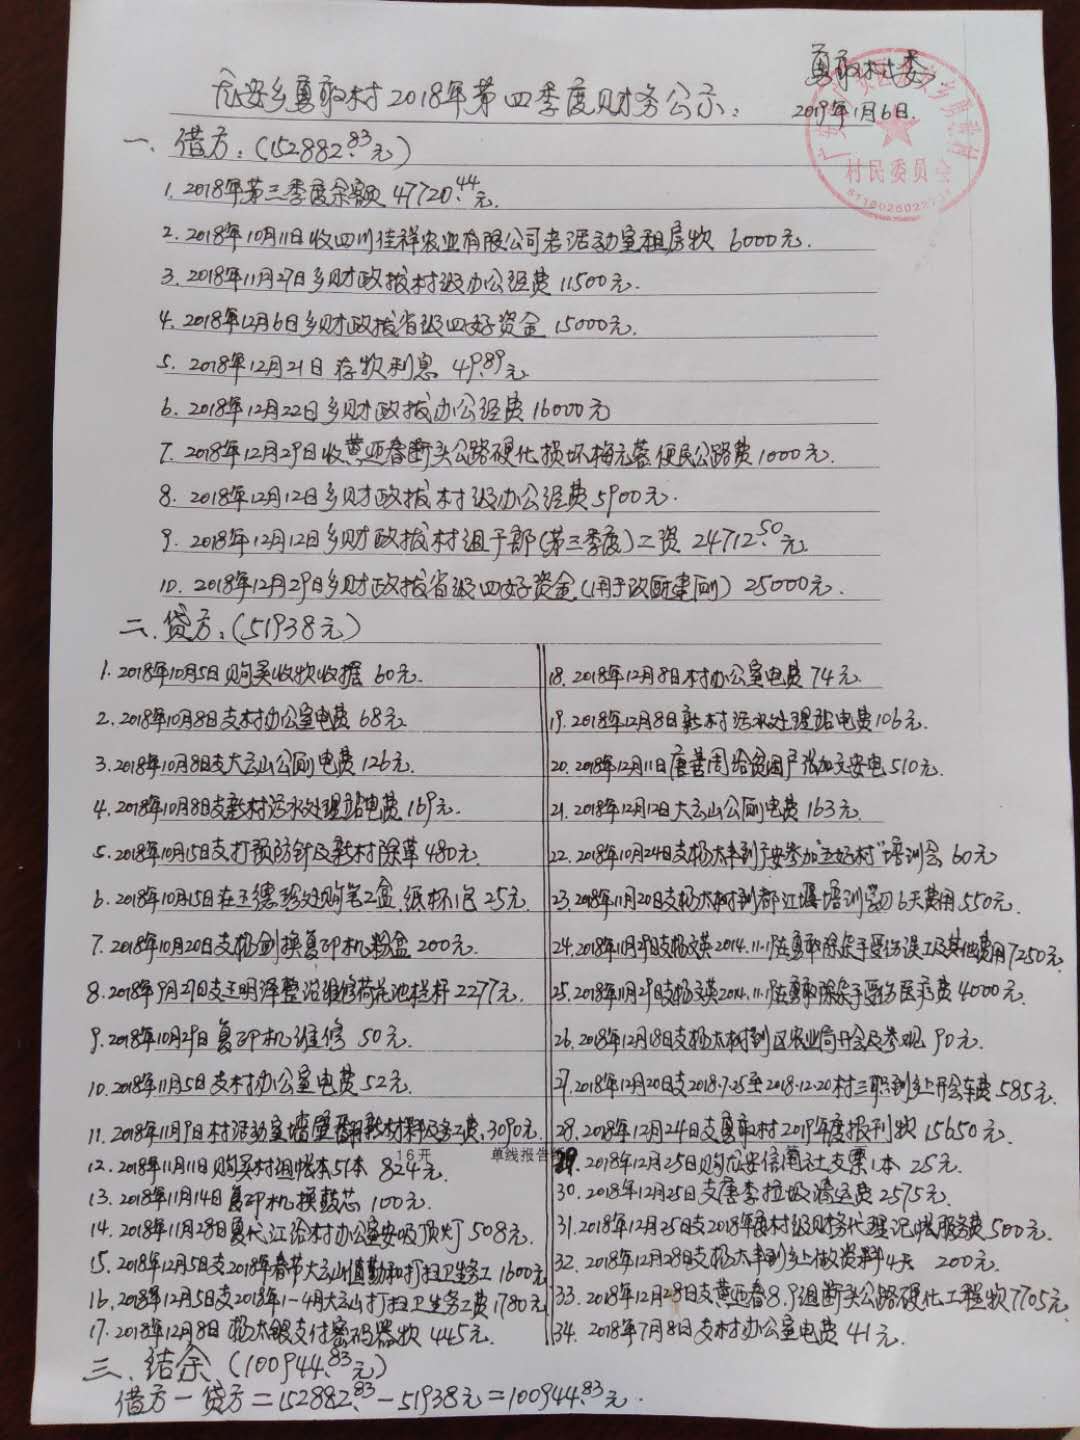 勇敢村委
2019年1月6日.
村民委员会
龙安乡勇敢村2018年第四季度财务公示:
一、借方:(152882.83元)
1.2018年第三季度余额 47720.44元.
2.2018年10月11日收四川佳祥农业有限公司老活动室租房款 6000元.
3.2018年11月27日乡财政拔村级办公经费11500元.
4.2018年12月6日乡财政拔省级四好资金 15000元.
5.2018年12月21日 存款利息 49.89元
6.2018年12月22日乡财政拔办公经费16000元
7.2018年12月29日收黄迎春断头公路硬化损坏梅元蓉便民公路费1000元.
8.2018年12月12日乡财政拔村级办公经费5900元.
9.2018年12月12日乡财政拔村组干部(第三季度)工资 24712.50元
10.2018年12月29日乡财政拔省级四好资金(用于改厕建厕) 25000元.
二.贷方:(51938元)
1.2018年10月5日购买收款收据 60元.
2.2018年10月8日支村办公室电费 68元
3.2018年10月8日支大云山公厕电费126元.
4.2018年10月8日支新村污水处理站电费169元.
5.2018年10月15日支打预防针及新村除草480元.
6.2018年10月15日在王德珍处购笔2盒.纸杯1包25元.
7.2018年10月20日支杨剑换复印机粉盒200元.
8.2018年9月29日支王明泽整治维修荷花池栏杆2277元.
9.2018年10月29日复印机维修 50元.
10.2018年11月5日支村办公室电费52元.
11.2018年11月9日村活动室墙材料及务工费.3090元
12.2018年11月11日购买村组帐本51本 824元.
13.2018年11月14日复印机换鼓芯 100元.
14.2018年11月28日夏代江给村办公室安吸顶灯 508元.
15.2018年12月5日支2018年春节大云山值勤和打扫卫生务工 1600元
16.2018年12月5日支2018年1-4月大云山打扫卫生务工费1780元
17.2018年12月8日 杨太银支付密码器款 445元.
16开
单线报告
18.2018年12月8日村办公室电费 74元.
19.2018年12月8日新村污水处理站电费106元.
20.2018年12月11日唐善周给贫困户张加文安电510元.
21.2018年12月12日大云山公厕电费 163元.
22.2018年10月24日支杨太丰到广安参加"五好村"培训会 60元
23.2018年11月20日支杨太树到都江堰培训学习6天费用550元.
24.2018年11月29日支杨文英2014.11.1在勇敢除杂受伤误工及其他费用7250元
25.2018年11月29日支杨文英2014.11.1在勇敢除杂受伤医疗费4000元.
26.2018年12月18日支杨太树到区农业局开会及参观 90元.
27.2018年12月20日支2018.7.25至2018.12.20村三职到乡上开会车费585元.
28.2018年12月24日支勇敢村2019年度报刊款 15650元.
29.2018年12月25日购龙安信用社支票1本 25元.
30.2018年12月25日支唐李垃圾清运费2575元.
31.2018年12月25日支2018年度村级财务代理记帐服务费500元.
32.2018年12月28日支杨太丰到乡上做资料4天 200元.
33.2018年12月28日支黄迎春8.9组断头公路硬化工程款7705元.
34.2018年7月8日支村办公室电费 41元.
三.结余(100944.83元)
借方-贷方=152882.83-51938元=100944.83元.